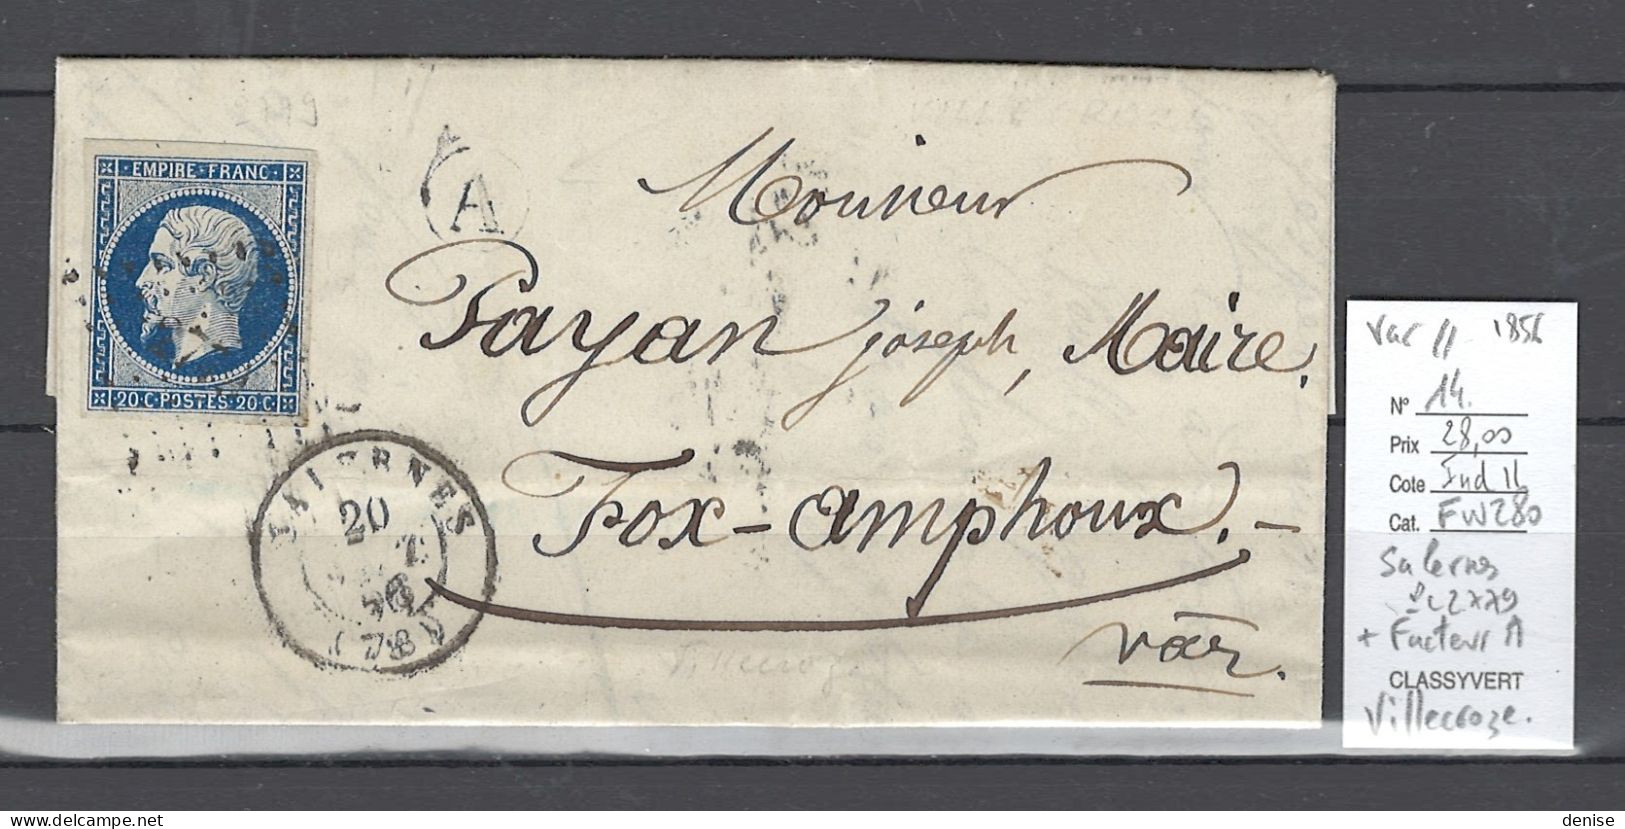 EMPIRE FRANC
20·C·POSTES·20·C
A
Monsieur
Payan joseph, Maire.
Fox-amphoux.-
Var.
SALERNES
20
56
(78)
Villecroze
Var 11 1856
N° 14.
Prix 28,00
Cote Ind 11
Cat. FW280
Salernes
PC 2779
+ Facteur A
CLASSYVERT
Villecroze.
delcampe.net
denise